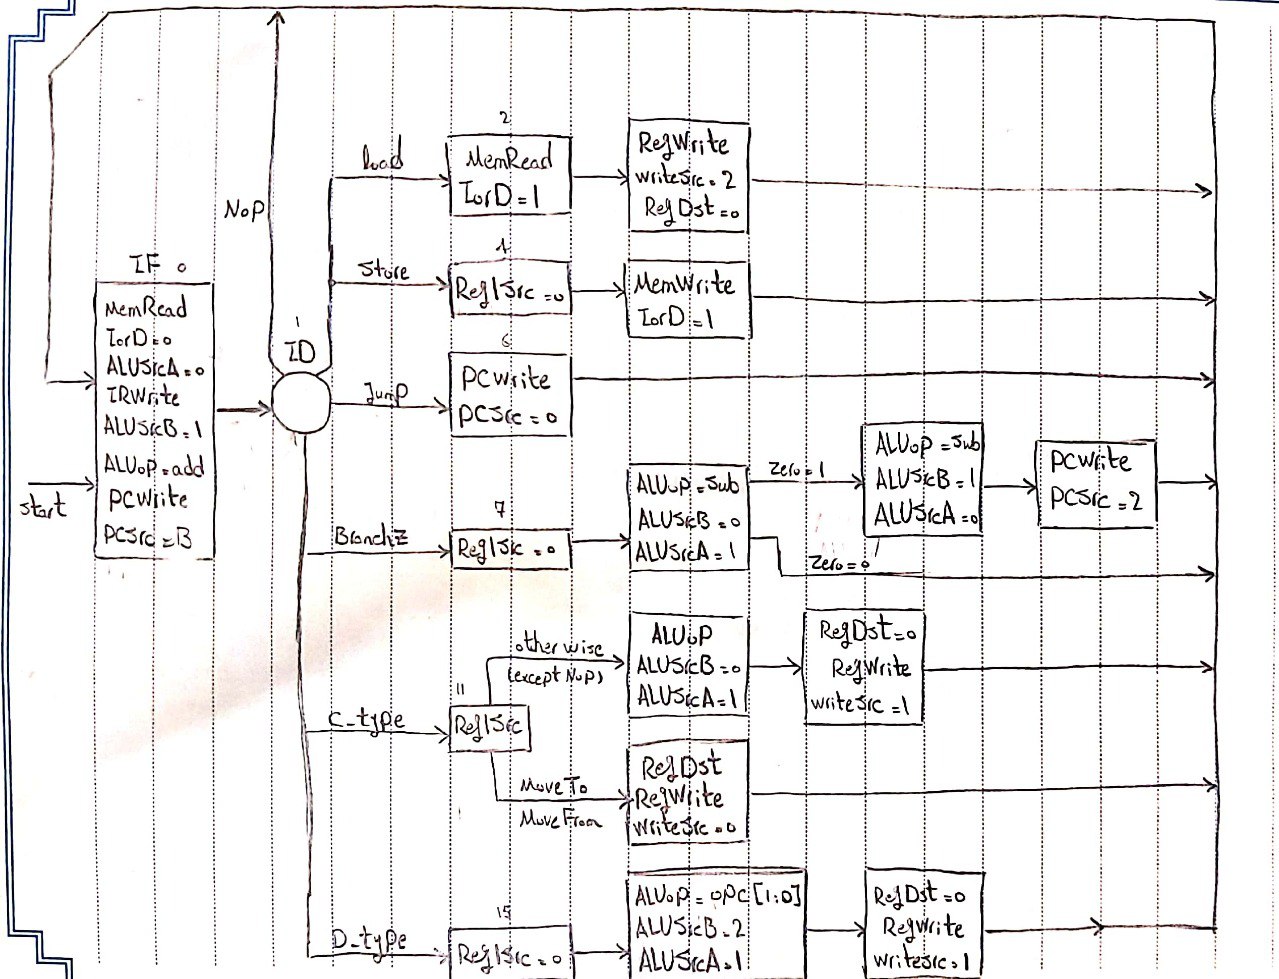 NoP
IF 0
MemRead
IorD=0
ALUSrcA=0
IRWrite
ALUSrcB=1
ALUoP=add
PCWrite
PCSrc=B
start
1
ID
load
2
MemRead
IorD=1
RegWrite
writeSrc=2
RegDst=0
Store
4
Reg1Src=0
MemWrite
IorD=1
Jump
6
PCWrite
PCSrc=0
BranchZ
7
Reg1Src=0
ALUoP=Sub
ALUSrcB=0
ALUSrcA=1
Zero=1
Zero=0
ALUoP=Sub
ALUSrcB=1
ALUSrcA=0
PCWrite
PCSrc=2
C_type
11
Reg1Src
other wise
(except NoP)
ALUoP
ALUSrcB=0
ALUSrcA=1
RegDst=0
RegWrite
writeSrc=1
MoveTo
MoveFrom
RegDst
RegWrite
writeSrc=0
D_type
15
Reg1Src=0
ALUoP=oPC[1:0]
ALUSrcB=2
ALUSrcA=1
RegDst=0
RegWrite
writeSrc=1